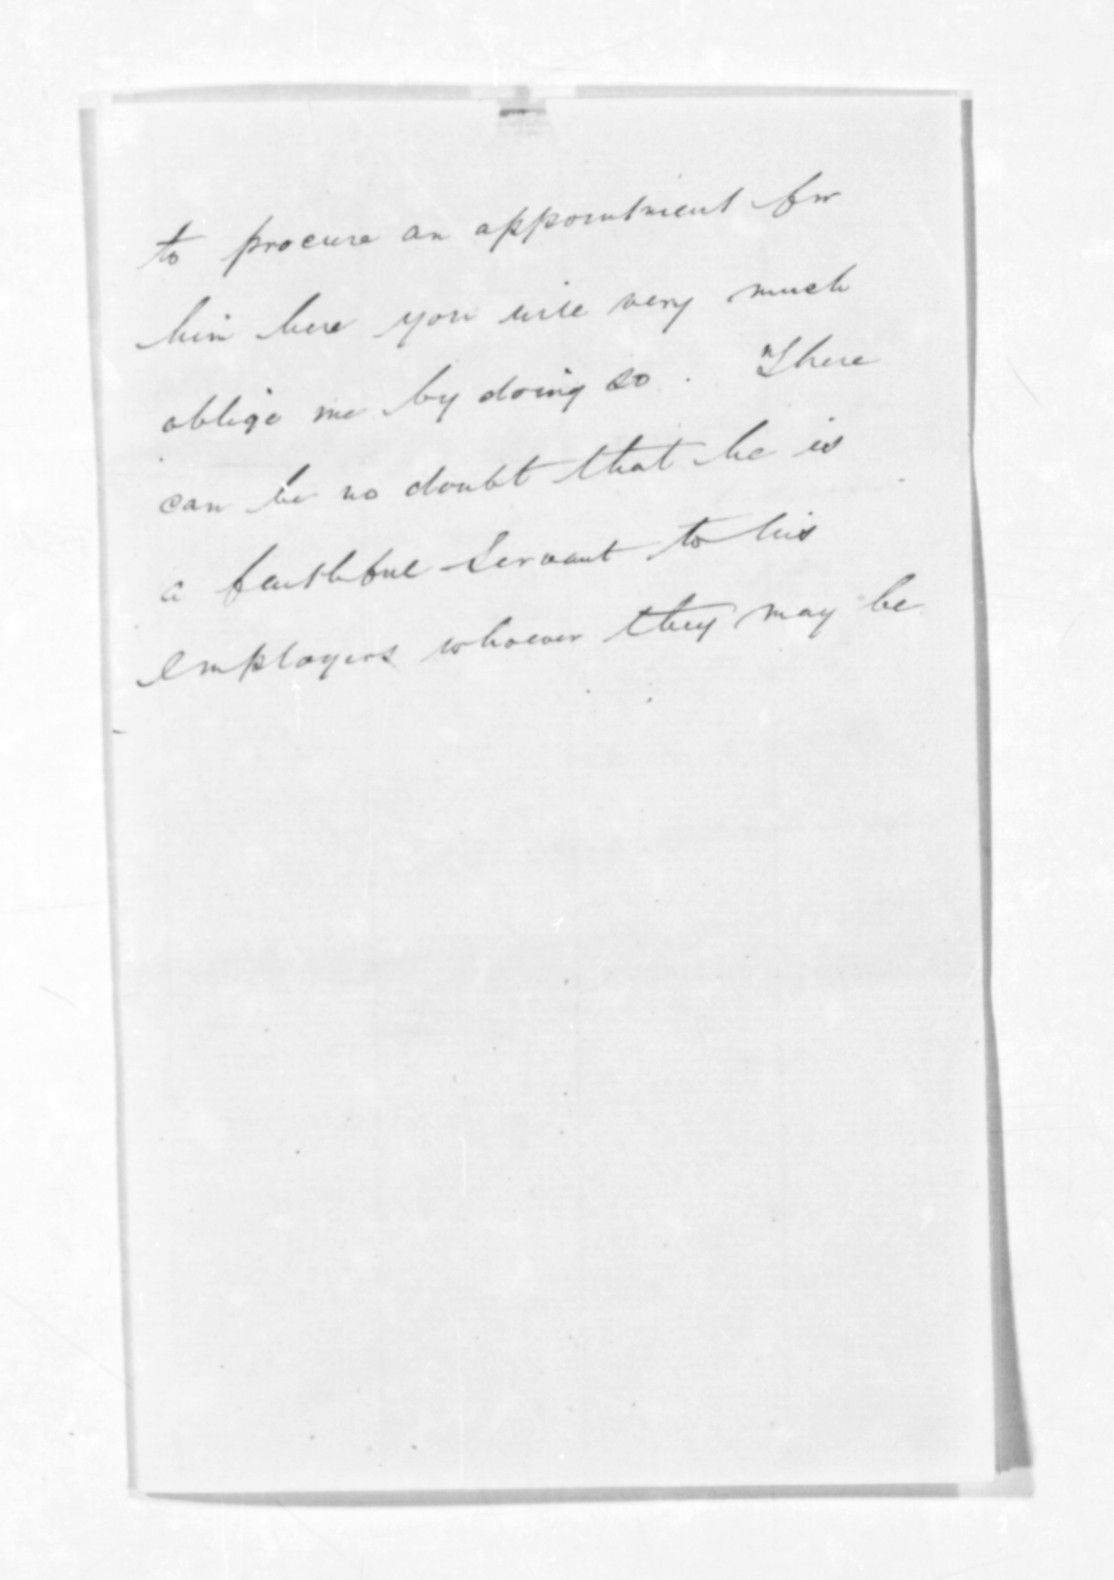 to procure an appointment for
him here you will very much
oblige me by doing so. There
can be no doubt that he is
a faithful servant to his
employers whoever they may be